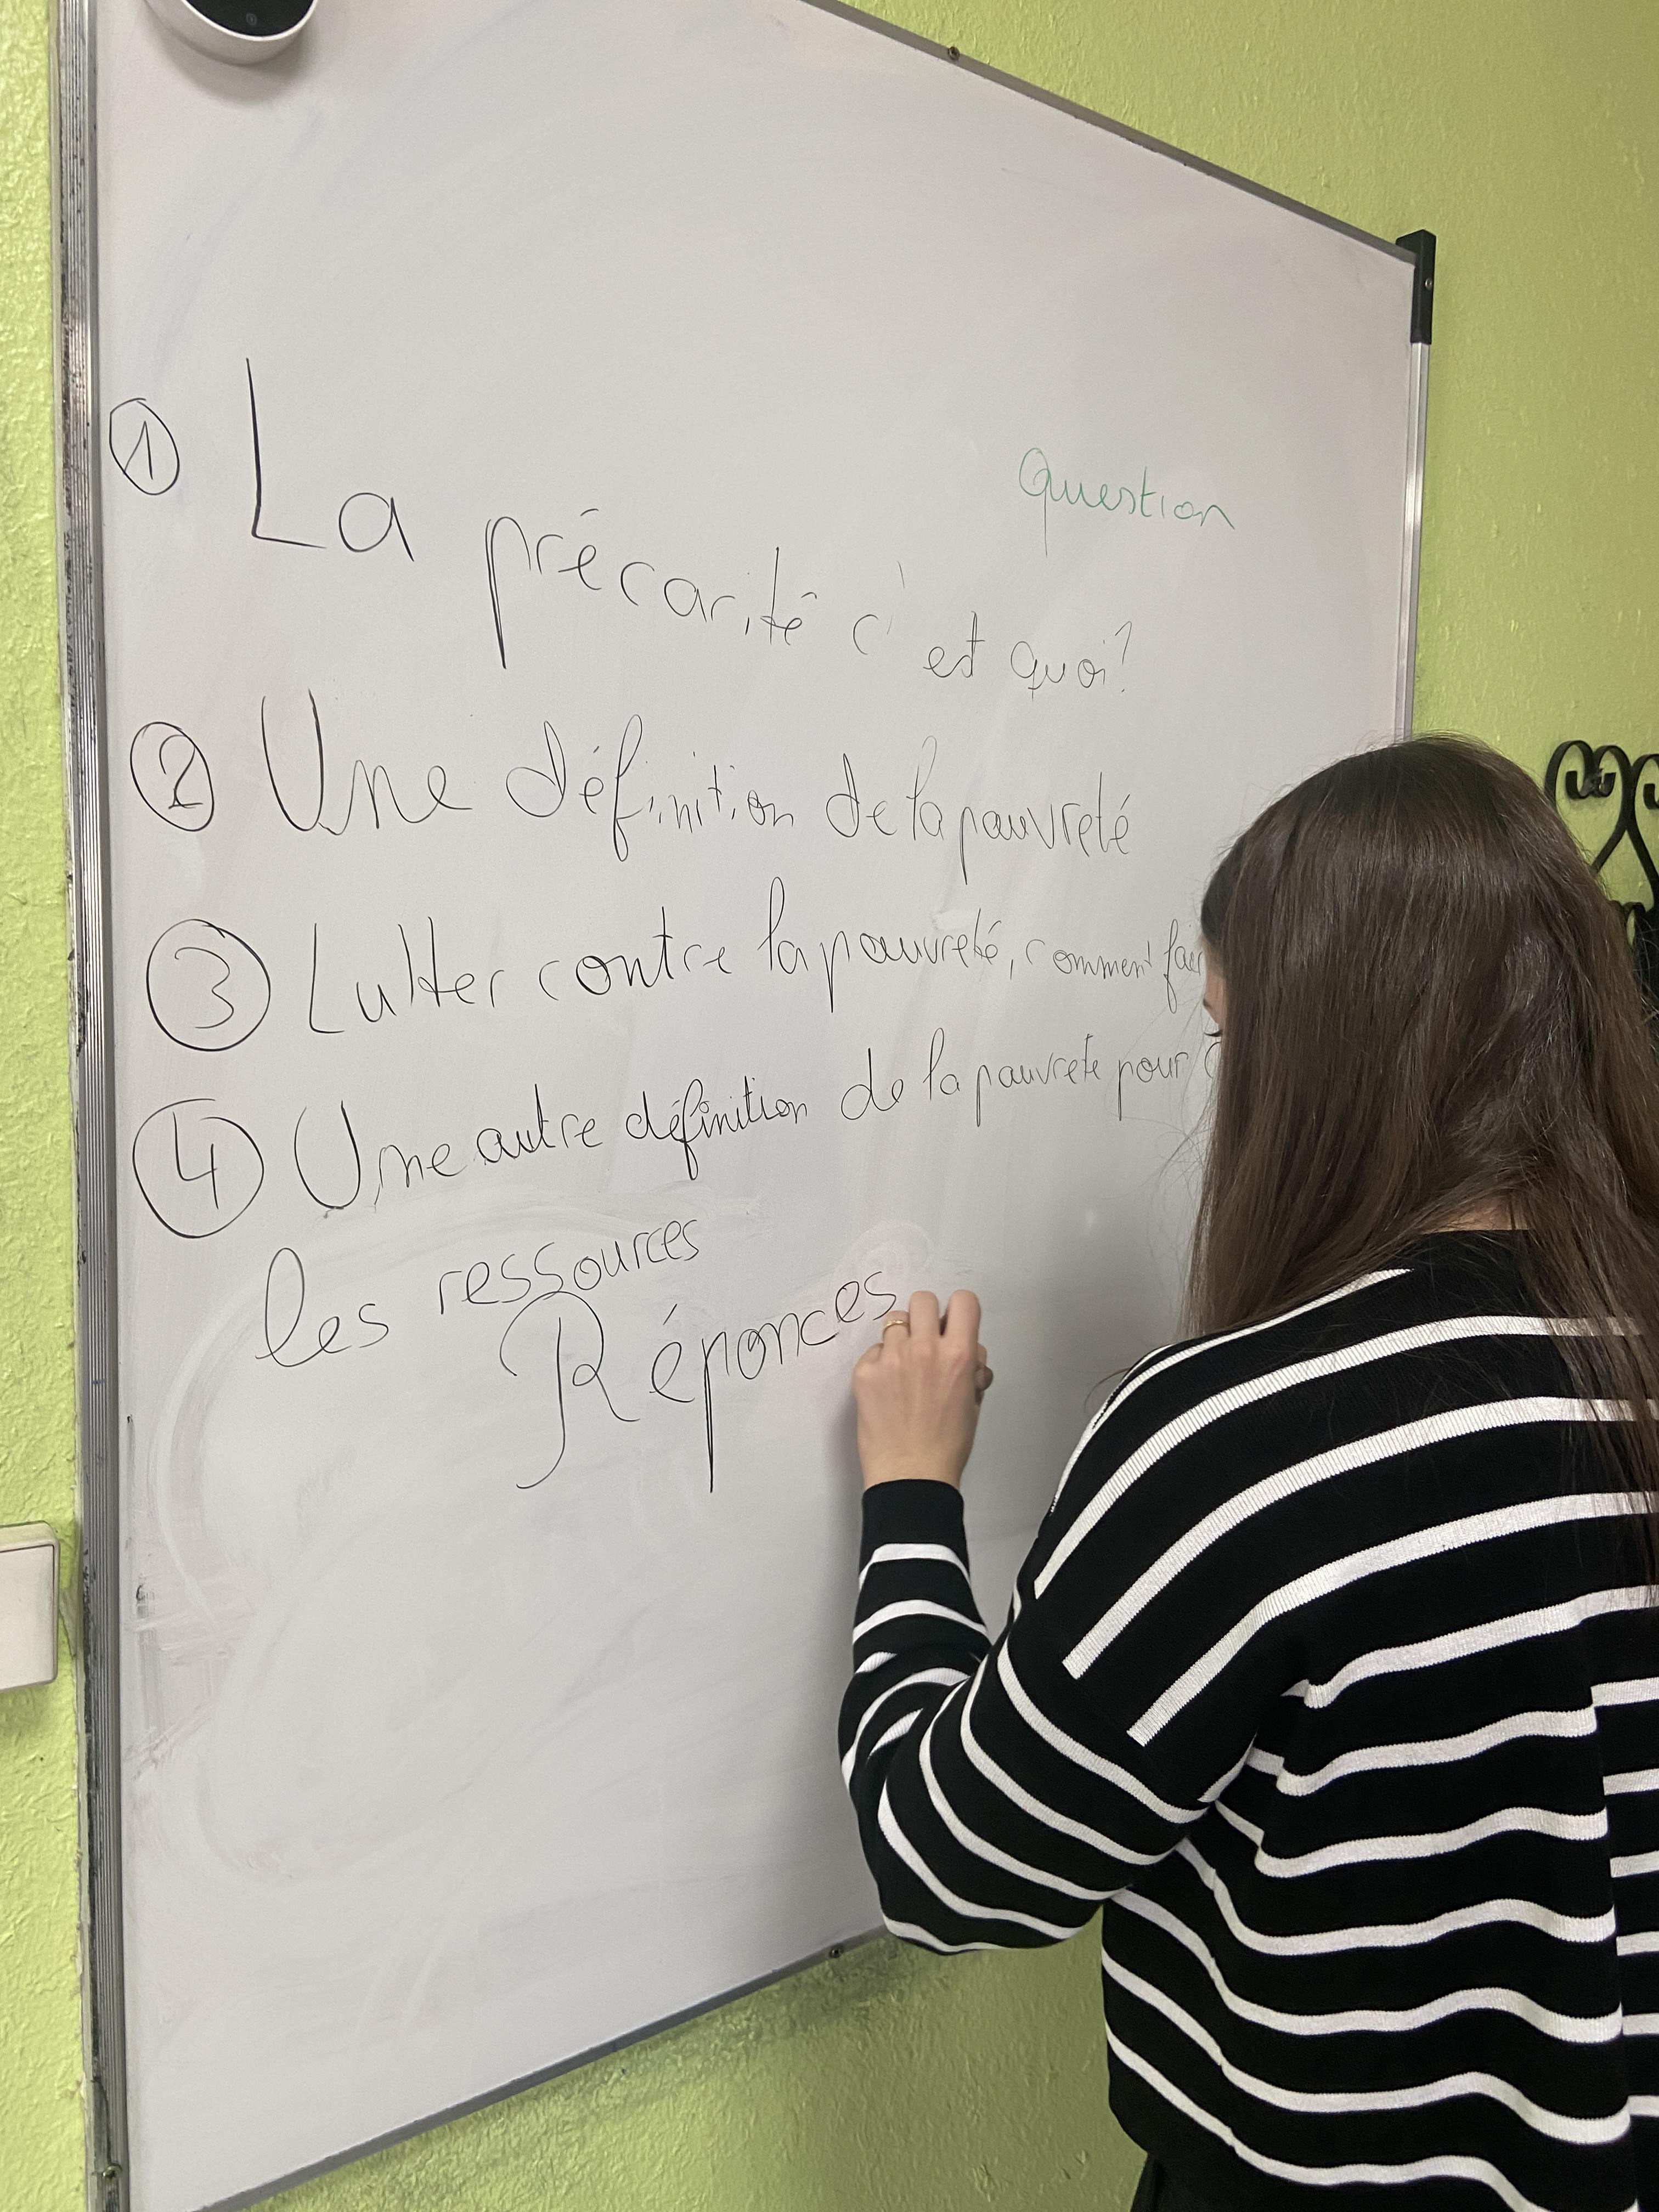 Question
① La précarité c'est quoi?
② Une définition de la pauvreté
③ Lutter contre la pauvreté, comment
④ Une autre définition de la pauvrete pour
les ressources
Réponces